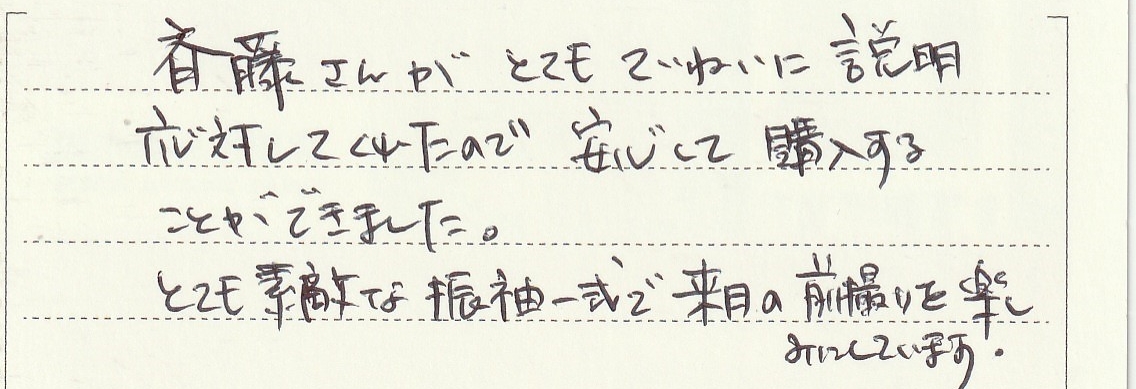 斉藤さんが とても ていねいに 説明
応対してくれたので 安心して 購入する
ことができました。
とても素敵な振袖一式で 来月の前撮りを楽し
みにしています.